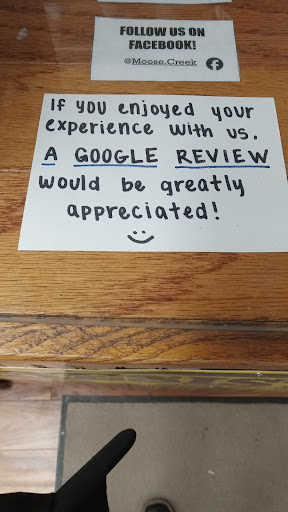 FOLLOW US ON
FACEBOOK!
@Moose.Creek
IF YOU enjoyed your
experience with us.
A GOOGLE REVIEW
would be greatly
appreciated!